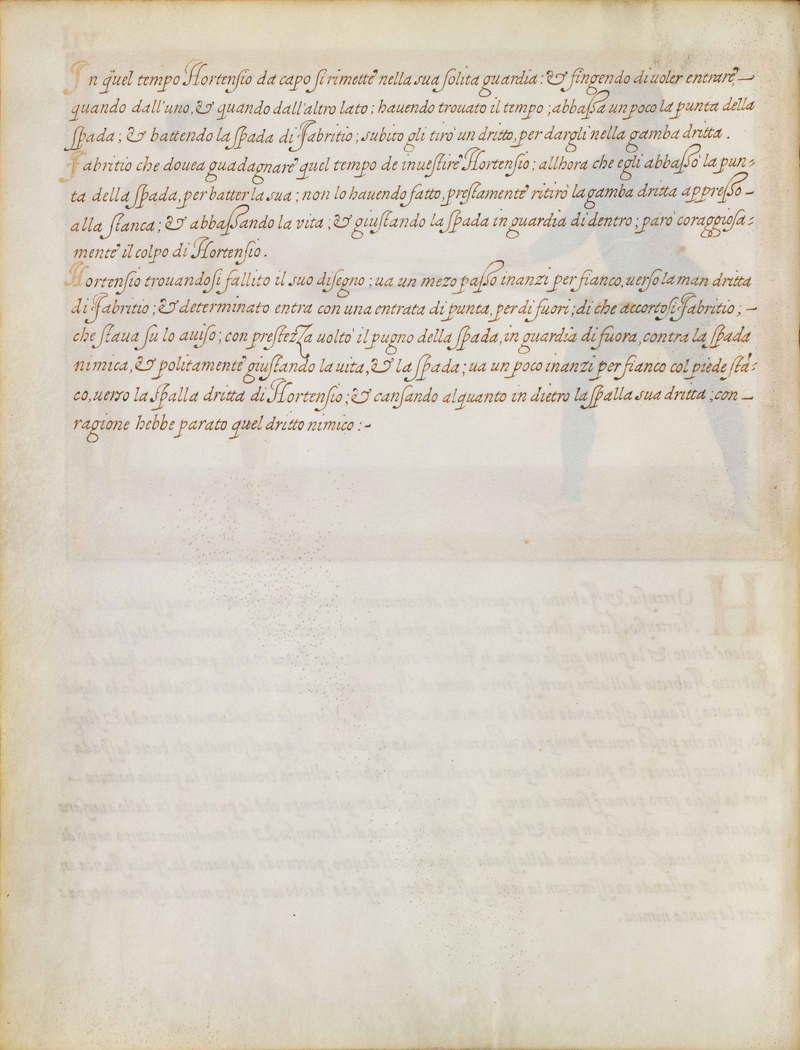 In quel tempo Hortensio da capo si rimette nella sua solita guardia: & fingendo di uoler entrare,—
quando dall'uno, & quando dall'altro lato; hauendo trouato il tempo; abbassa un poco la punta della
spada; & battendo la spada di Fabritio; subito gli tirò un dritto, per dargli nella gamba dritta.
Fabritio che douea guadagnare quel tempo de inuestire Hortensio; allhora che egli abbassò la pun:
ta della spada, per batter la sua; non lo hauendo fatto, prestamente ritirò la gamba dritta appresso—
alla stanca; & abbassando la vita; & giustando la spada in guardia di dentro; parò coraggiosa:
mente il colpo di Hortensio.
Hortensio trouandosi fallito il suo disegno; ua un mezo passo inanzi per fianco, uerso la man dritta
di Fabritio; & determinato entra con una entrata di punta, per di fuori; di che accortosi Fabritio;—
che staua su lo auiso; con prestezza uoltò il pugno della spada, in guardia di fuora, contra la spada
nimica, & politamente giustando la uita, & la spada; ua un poco inanzi per fianco col piede stã:
co, uerso la spalla dritta di Hortensio; & cansando alquanto in dietro la spalla sua dritta; con—
ragione hebbe parato quel dritto nimico:-